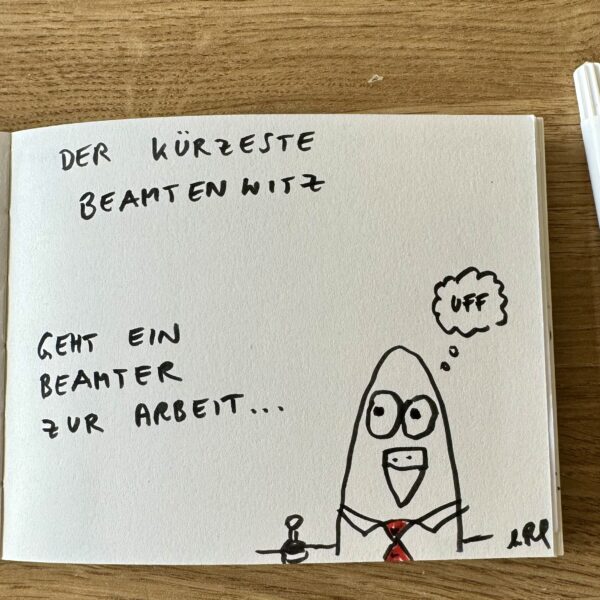 DER KÜRZESTE
BEAMTENWITZ
UFF
GEHT EIN
BEAMTER
ZUR ARBEIT...